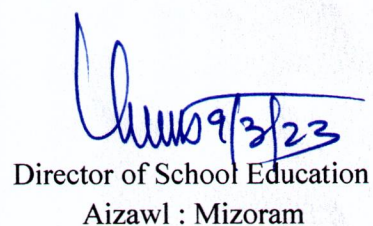 9/3/23
Director of School Education
Aizawl : Mizoram